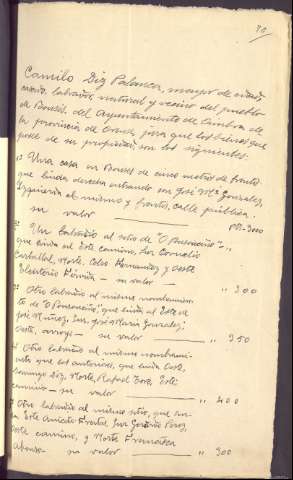 70
Camilo Diz Palanca, mayor de edad,
casado, labrador, natural y vecino del pueblo
de Bousés, del Ayuntamiento de Oimbra de
la provincia de Orense, jura que los bienes que
posee de su propiedad son los siguientes.
Una casa en Bousés de cinco metros de frente
que linda derecha entrando con José Mª Gonzalez,
Izquierda el mismo y frente, calle pública.
su valor PTS-3000
Un labradío al sitio de
que linda al Este camino, Sur Cornelio
Carballal, Norte, Celso Hernandez y Oeste
su valor " 300
Otro labradío al mismo nombramien-
to de que linda al Este de
José Muñoz, Sur, José María Gonzalez,
Oeste, arroyo — su valor " 350
Otro labradío al mismo nombrami-
ento que los anteriores, que linda Este,
Domingo Diz, Norte, Rafael
camino — su valor " 400
Otro labradío al mismo sitio, que lin-
da Este Aniceto Sur Gerardo Pérez,
Oeste camino, y Norte Francisca
Alonso — su valor " 300